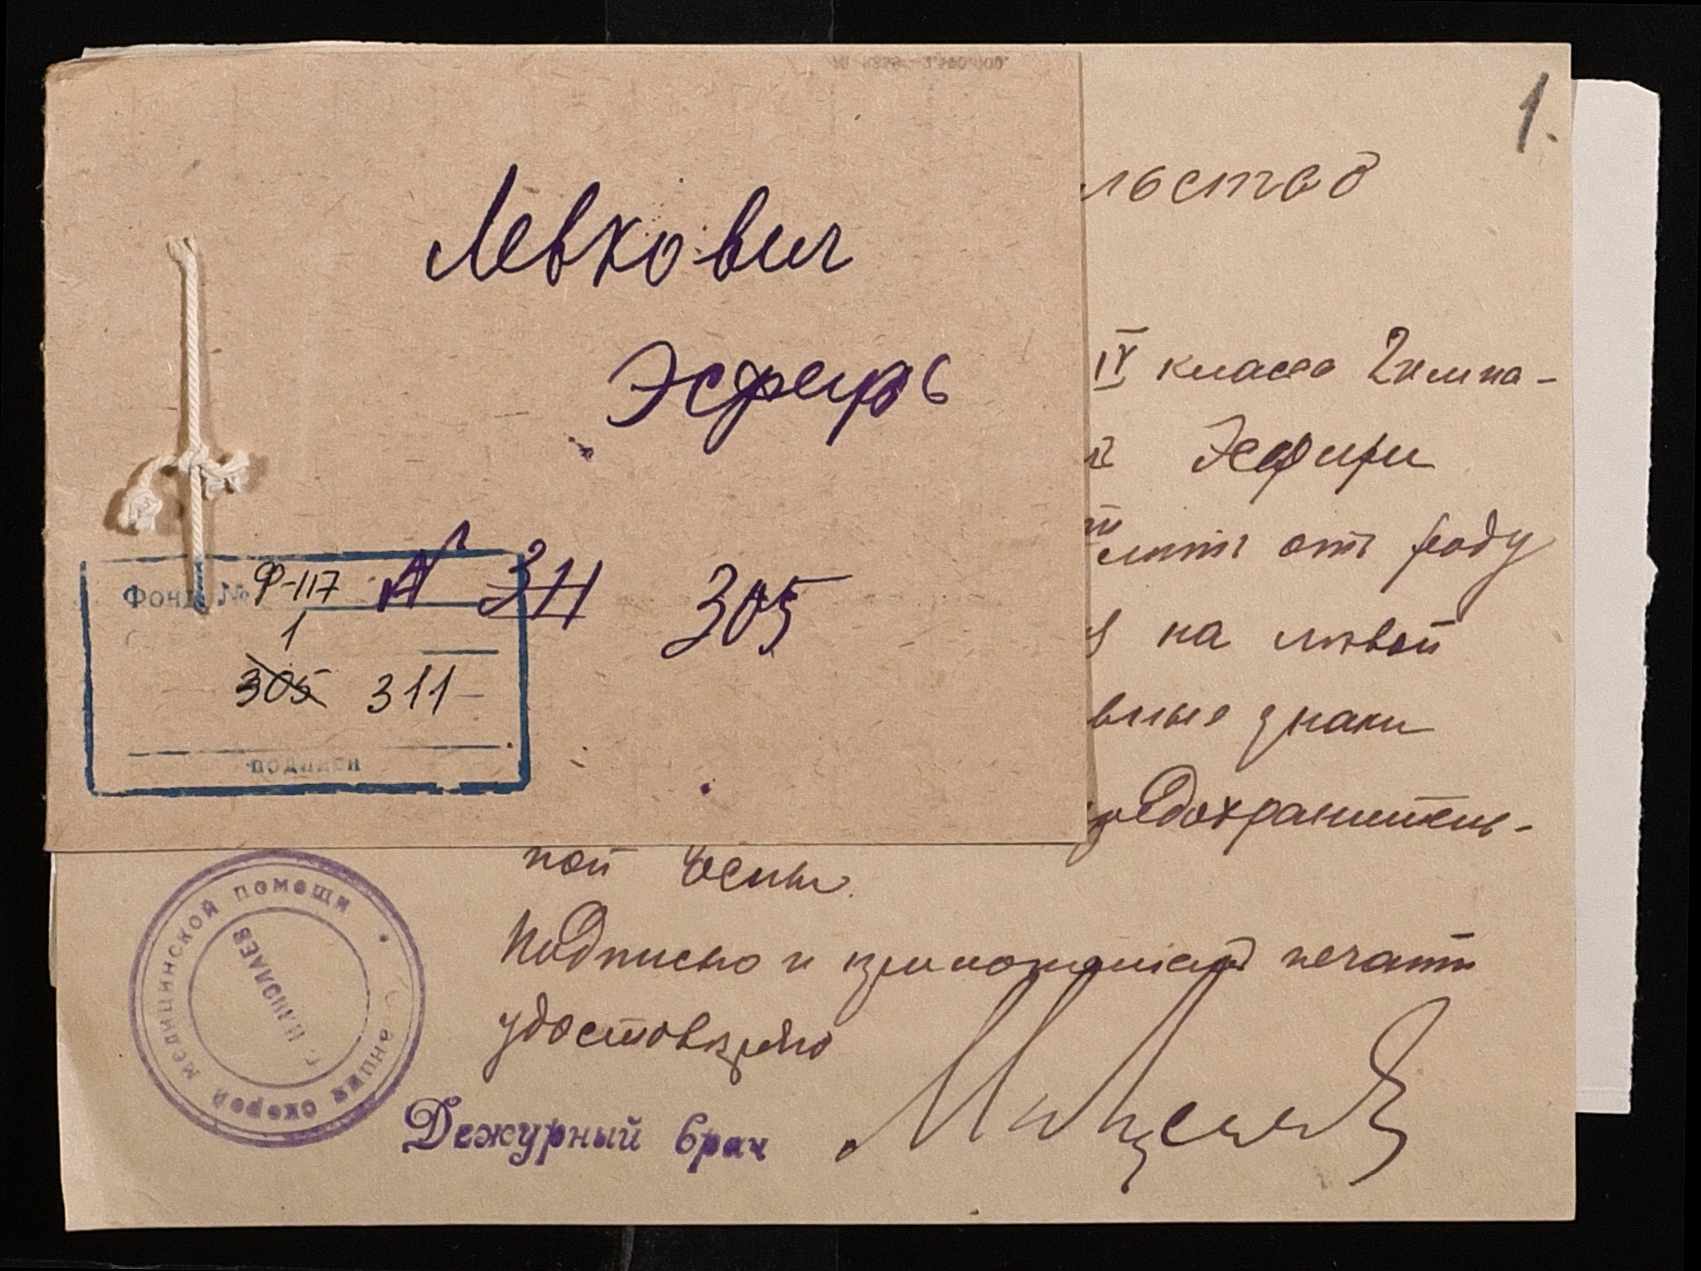 1.
Левкович
Эсфирь
Фонд № Ф-117
1
305 311
подписи
N 311 305
льство
IV класса Гимна-
Эсфири
лѣтъ отъ роду
на лѣвой
знаки
предохранитель-
ной оспы.
Подписью и приложеніемъ печати
удостовѣряю
Дежурный врач
станция скорой медицинской помощи
г. НИКОЛАЕВ